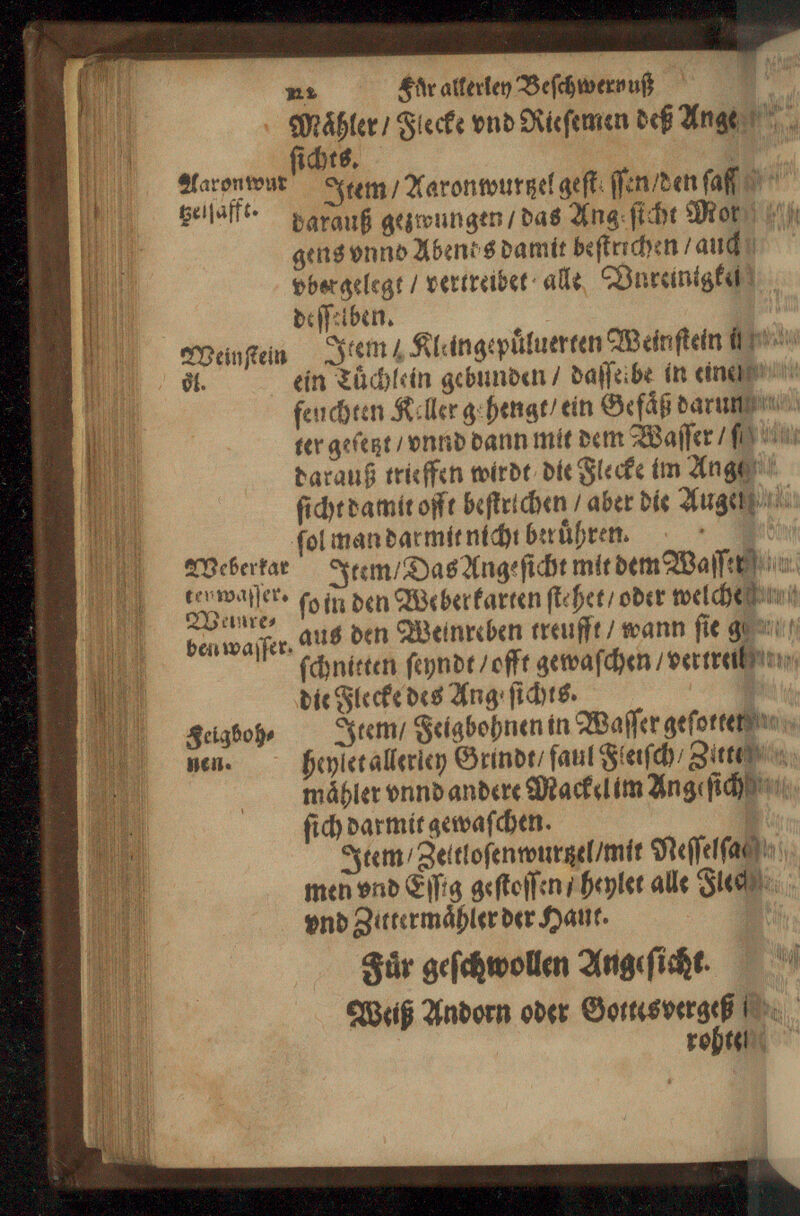 Für allerley Beſchwernuß
Mähler / Flecke vnd Rieſemen deß Ange
ſichts.
Aaronwur
tzelſafft.
Item / Aaronwurtzel geſtoſſen / den ſafft
darauß gezwungen / das Angeſicht Mor
gens vnnd Abends damit beſtrichen / auch
vbergelegt / vertreibet alle Vnreinigkei
deſſelben.
Weinſtein
öl.
Item / Kleingepüluerten Weinſtein i
ein Tüchlein gebunden / daſſelbe in einem
feuchten Keller gehengt / ein Gefäß darun
ter geſetzt / vnnd dann mit dem Waſſer / ſ
darauß trieffen wirdt die Flecke im Ange
ſicht damit offt beſtrichen / aber die Augen
ſol man darmit nicht berühren.
Weberkar
tenwaſſer.
Weinre⸗
ben waſſer.
Item / Das Angeſicht mit dem Waſſer
ſo in den Weberkarten ſtehet / oder welches
aus den Weinreben treufft / wann ſie ge
ſchnitten ſeyndt / offt gewaſchen / vertreibt
die Flecke des Angeſichts.
Feigboh⸗
nen.
Item / Feigbohnen in Waſſer geſotten
heylet allerley Grindt / faul Fleiſch / Zitter
mähler vnnd andere Mackel im Angeſicht
ſich darmit gewaſchen.
Item / Zeitloſenwurtzel / mit Neſſelſaa
men vnd Eſſig geſtoſſen / heylet alle Fleck
vnd Zittermähler der Haut.
Für geſchwollen Angeſicht.
Weiß Andorn oder Gottesvergeß i
rohten